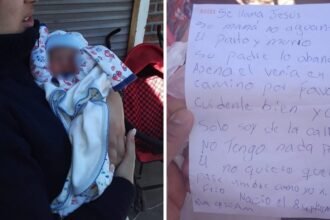 Se llama Jesús
Su mamá no aguan
el parto y murio
Su padre lo aban
el venia en
camino por favo
Cuidenle bien yo
Solo soy de la call
No tengo nada p
el no quiero que
pase hambre como yo ni
Frio Nacio el